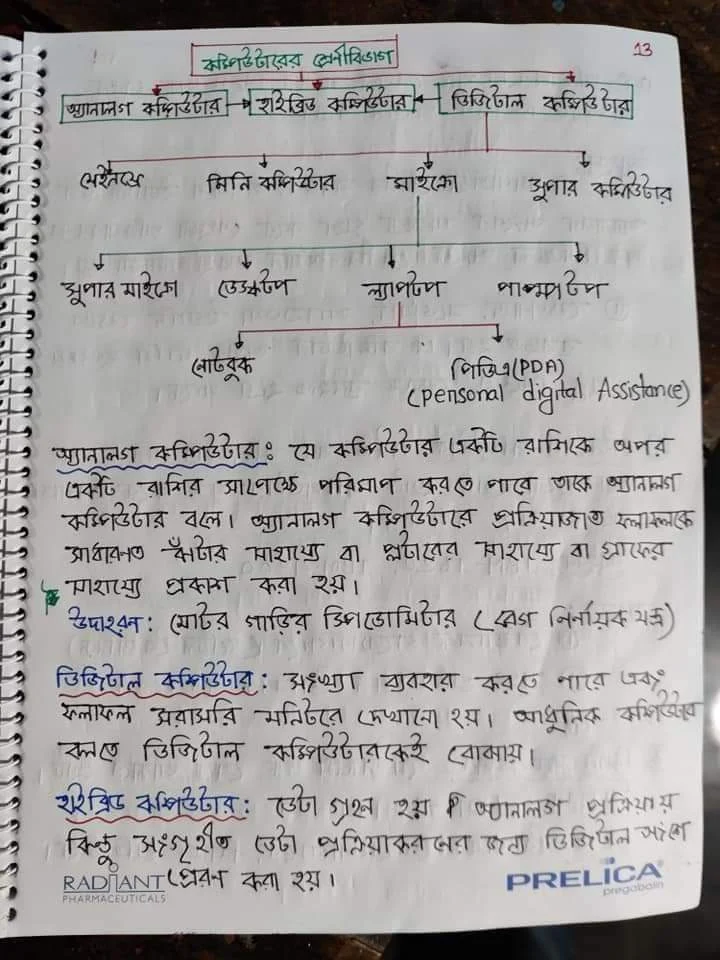 13
কম্পিউটারের শ্রেণীবিভাগ
অ্যানালগ কম্পিউটার হাইব্রিড কম্পিউটার ডিজিটাল কম্পিউটার
মেইনফ্রেম মিনি কম্পিউটার মাইক্রো সুপার কম্পিউটার
সুপার মাইক্রো ডেস্কটপ ল্যাপটপ পামটপ
নোটবুক পিডিএ (PDA)
(personal digital Assistance)
অ্যানালগ কম্পিউটার : যে কম্পিউটার একটি রাশিকে অপর
একটি রাশির সাপেক্ষে পরিমাপ করতে পারে তাকে অ্যানালগ
কম্পিউটার বলে। অ্যানালগ কম্পিউটারে প্রক্রিয়াজাত ফলাফলকে
সাধারনত কাঁটার সাহায্যে বা প্লটারের সাহায্যে বা গ্রাফের
সাহায্যে প্রকাশ করা হয়।
উদাহরন : মোটর গাড়ির স্পিডোমিটার (বেগ নির্নায়ক যন্ত্র)
ডিজিটাল কম্পিউটার : সংখ্যা ব্যবহার করতে পারে এবং
ফলাফল সরাসরি মনিটরে দেখানো হয়। আধুনিক কম্পিউটার
বলতে ডিজিটাল কম্পিউটারকেই বোঝায়।
হাইব্রিড কম্পিউটার : ডেটা গ্রহন হয় অ্যানালগ প্রক্রিয়ায়
কিন্তু সংগৃহীত ডেটা প্রক্রিয়াকরনের জন্য ডিজিটাল অংশে
প্রেরণ করা হয়।
RADIANT
PHARMACEUTICALS
PRELICA
pregabalin